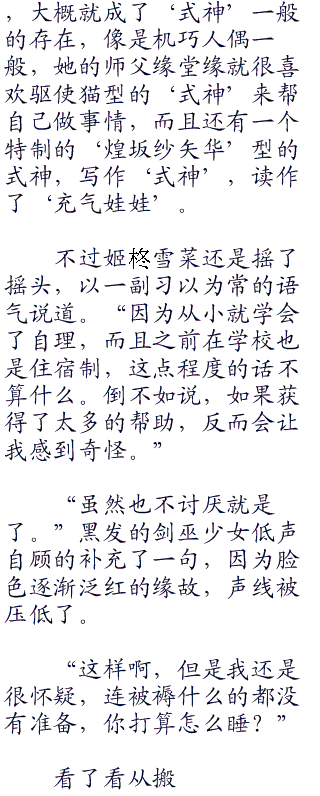 ，大概就成了‘式神’一般
的存在，像是机巧人偶一
般，她的师父缘堂缘就很喜
欢驱使猫型的‘式神’来帮
自己做事情，而且还有一个
特制的‘煌坂纱矢华’型的
式神，写作‘式神’，读作
了‘充气娃娃’。
不过姬柊雪菜还是摇了
摇头，以一副习以为常的语
气说道。“因为从小就学会
了自理，而且之前在学校也
是住宿制，这点程度的话不
算什么。倒不如说，如果获
得了太多的帮助，反而会让
我感到奇怪。”
“虽然也不讨厌就是
了。”黑发的剑巫少女低声
自顾的补充了一句，因为脸
色逐渐泛红的缘故，声线被
压低了。
“这样啊，但是我还是
很怀疑，连被褥什么的都没
有准备，你打算怎么睡？”
看了看从搬